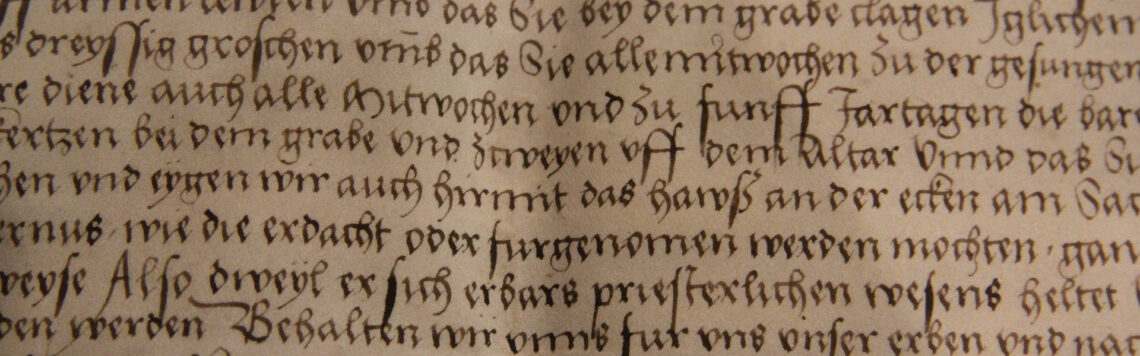 armen leuten vnnd das Sie bey dem grabe clagen Iglichen
s dreyssig groschen vmb das Sie alle mitwochen zu der gesungen
re diene auch alle Mitwochen vnd zu funff Jartagen die bar
kertzen bei dem grabe vnd zweyen vff dem Altar Vnnd das Si
hen vnd eygen wir auch hirmit das hawß an der ecken am Sac
ernus, wie die erdacht oder furgenomen werden mochten, gan
weyse Also dweyl er sich erbars priesterlichen wesens heltet
den werden Behalten wir vnns fur vns vnser erben vnd nac